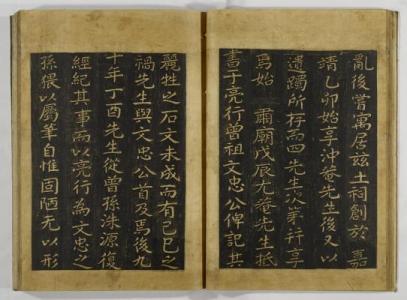 亂後嘗寓居玆土祠創於 嘉
靖乙卯始享冲菴先生後又以
遺躅所存而四先生次第幷享
焉始 肅廟戊辰尤菴先生抵
書于亮行曾祖文忠公俾記其
麗牲之石文未成而有己巳之
禍先生與文忠公首及焉後九
十年丁酉先生從曾孫洙源復
經紀其事而以亮行為文忠之
孫猥以屬筆自惟固陋无以形